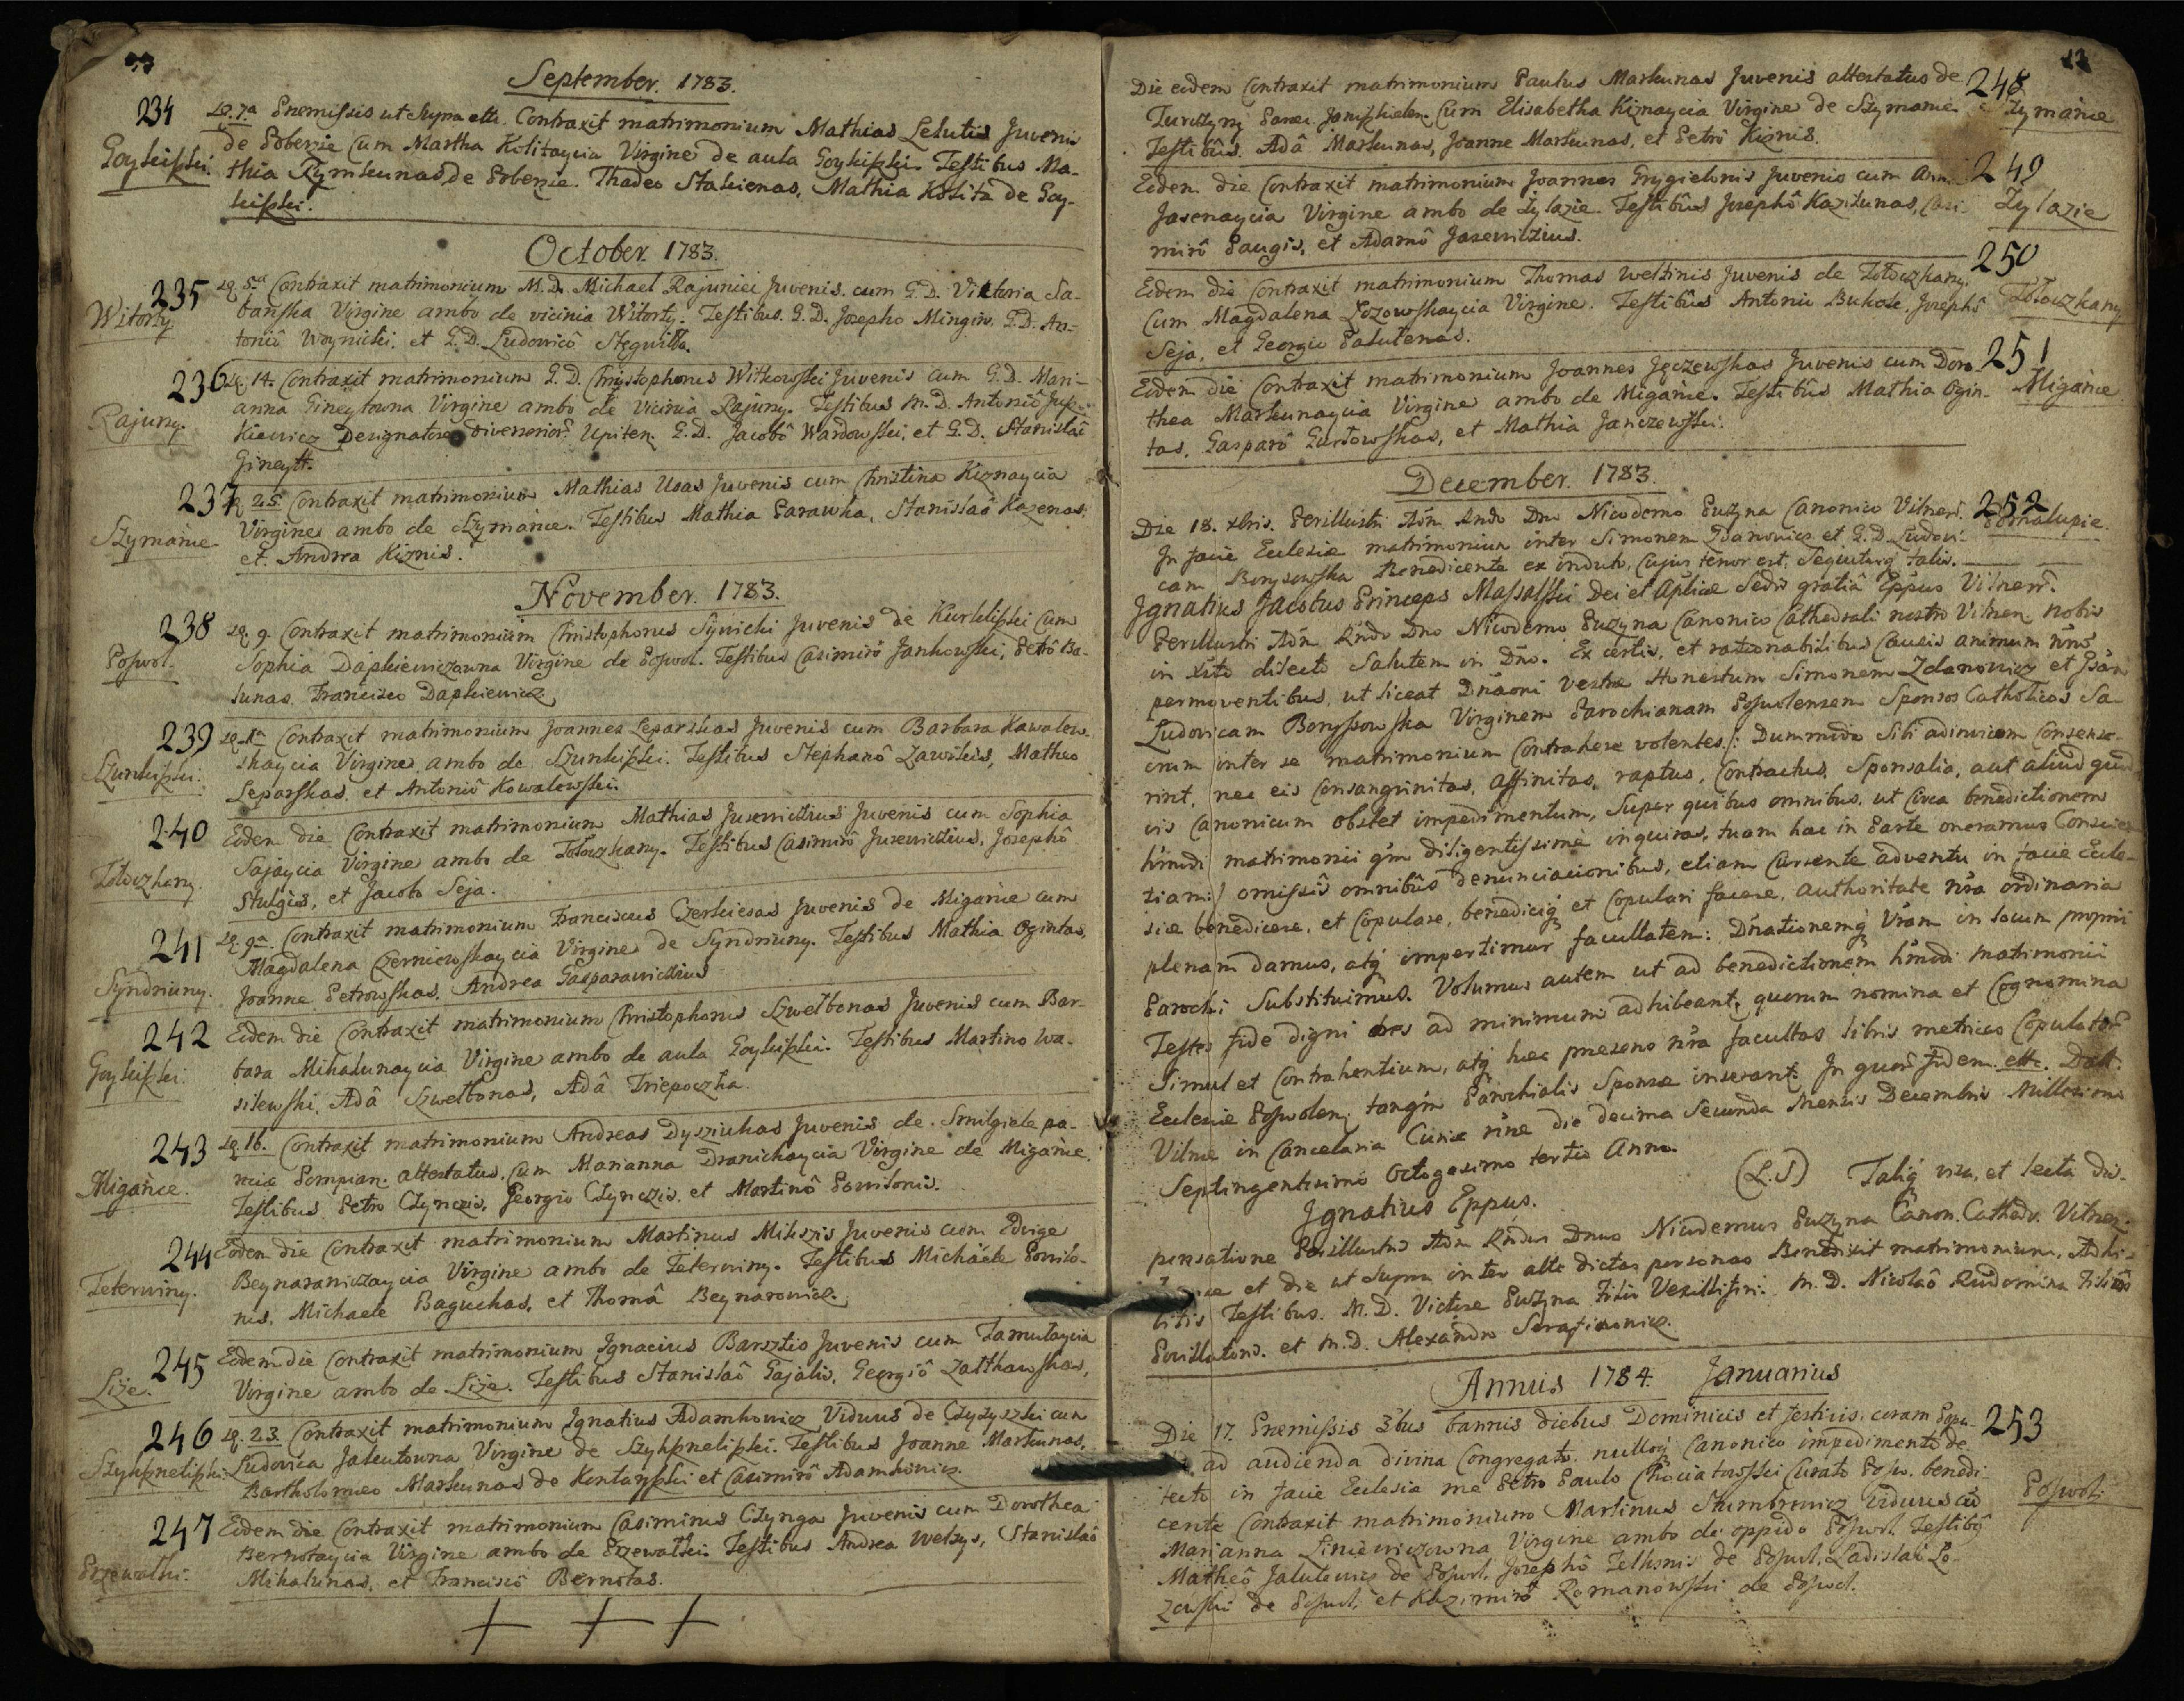 September. 1783.
234
Goykiszki.
De Poberzie Cum Martha Kolitaycia Virgine de aula Goykiszki. Testibus Ma-
thia Rymkunas de Poberzie. Thadeo Stakienas, Mathia Kolita de Goy-
kiszki.
October. 1783.
235
Witorty
Contraxit matrimonium M.D. Michael Rajunici Juvenis cum G.D. Victoria Sa-
bańska Virgine ambo de vicinia Witorty. Testibus G.D. Josepho Mingin, G.D. An-
tonio Woynicki, et G.D. Ludovicô Steguiłł.
236
Rajuny.
14. Contraxit matrimonium G.D. Christophorus Witkowski Juvenis cum G.D. Mari-
anna Gineytowna Virgine ambo de Vicinia Rajuny. Testibus M.D. Antoniô
kiewicz Designatore Upiten. G.D. Jacobô Wardowski, et G.D. Stanislaô
Gineytt.
237
Szymańce.
25. Contraxit matrimonium Mathias Usas Juvenis cum Christina Kiznaycia
Virgine ambo de Szymańce. Testibus Mathia Parawka, Stanislaô Kazenas,
et Andrea Kiznis.
November. 1783.
238
Poswol.
9. Contraxit matrimonium Christophorus Synicki Juvenis de Kurkliszki Cum
Sophia Dapkiewiczowna Virgine de Poswol. Testibus Casimirô Jankowski, Petrô Ba-
lunas, Francisco Dapkiewicz
239
Szunkiszki.
Contraxit matrimonium Joannes Leparskas Juvenis cum Barbara Kawalew-
skaycia Virgine ambo de Szunkiszki. Testibus Stephanô Zawiskis, Matheo
Leparskas, et Antoniô Kowalewski.
240
Tołoczkany.
Eodem die Contraxit matrimonium Mathias Jusewiczius Juvenis cum Sophia
Sajaycia Virgine ambo de Tołoczkany. Testibus Casimirô Jusewiczius, Josephô
Stulgis, et Jacobo Seja.
241
Syndriuny.
Contraxit matrimonium Franciscus Czerkiesas Juvenis de Migańce cum
Magdalena Czerniewskaycia Virgine de Syndriuny. Testibus Mathia Ogintas,
Joanne Petrowskas, Andrea Gasparawiczius
242
Goykiszki.
Eodem die Contraxit matrimonium Christophorus Szwelbonas Juvenis cum Bar-
bara Mikalunaycia Virgine ambo de aula Goykiszki. Testibus Martino Wa-
silewski, Adâ Szwelbonas, Adâ Triepoczka.
243
Migańce.
16. Contraxit matrimonium Andreas Dysziukas Juvenis de Smilgiele pa-
rociae Pompian. attestatus, Cum Marianna Dranickaycia Virgine de Migańce.
Testibus Petro Czynczis, Georgio Czynczis, et Martinô Powilonis.
244
Teterwiny.
Eodem die Contraxit matrimonium Martinus Mikszis Juvenis cum Edvige
Beynarawiczaycia Virgine ambo de Teterwiny. Testibus Michaële Powilo-
nis, Michaele Baguckas, et Thomâ Beynarowicz.
245
Liże.
Eodem die Contraxit matrimonium Ignacius Barsztis Juvenis cum Jamutaycia
Virgine ambo de Liże. Testibus Stanislaô Gajalis, Georgiô Zatthawskas,
246
Szykszneliszki.
23. Contraxit matrimonium Ignatius Adamkowicz Viduus de Czyżyszki cum
Ludovica Jakutowna Virgine de Szykszneliszki. Testibus Joanne Markunas,
Bartholomeo Markunas de Kontaryszki et Casimirô Adamkowicz.
247
Przewałki.
Eodem die Contraxit matrimonium Casimirus Czynga Juvenis cum Dorothea
Bernotaycia Virgine ambo de Przewałki. Testibus Andrea Welzys, Stanislaô
Mikalunas, et Francisco Bernotas.
Die eodem Contraxit matrimonium Paulus Markunas Juvenis attestatus de
Cum Elisabetha Kiznaycia Virgine de Szymańce.
Testibûs Adâ Markunas, Joanne Markunas, et Petrô Kiznis.
248
Szymańce
Eodem die Contraxit matrimonium Joannes Grygielonis Juvenis cum
Jasenaycia Virgine ambo de Zylazie. Testibûs Josephô Kazilunas, Casi-
mirô Paugis, et Adamô Jasewiczius.
249
Zylazie
Eodem die Contraxit matrimonium Thomas Weltinis Juvenis de Tołoczkany.
Cum Magdalena Łozowskaycia Virgine. Testibûs Antonio Bukote, Josephô
Seja, et Georgio Palutenas.
250
Tołoczkany
Eodem die Contraxit matrimonium Joannes Jęczewskas Juvenis cum Doro-
thea Markunaycia Virgine ambo de Migańce. Testibûs Mathia Ogin-
tas, Gasparô Gurłowskas, et Mathia Janczewski.
251
Migańce
December. 1783.
Die 18. xbris. Perillustri Adm Rndo Dno Nicodemo Puzyna Canonico Vilnen.
In facie Ecclesiae matrimonium inter Simonem Zdanowicz et G.D. Ludovi-
cam Borysowska Benedicente ex indulto, Cujus tenor est, Sequiturq talis.
252
Ignatius Jacobus Princeps Massalski Dei et Aplicae Sedis gratiâ Eppus Vilnen.
Perillustri Adm Rndo Dno Nicodemo Puzyna Canonico Cathedrali nostro Vilnen. nobis
in Xsto dilecto Salutem in Dno. Ex certis, et rationabilibus Causis animum nrum
permoventibus, ut liceat Dnaoni Vestrae Honestum Simonem Zdanowicz et Gsam
Ludovicam Boryssowska Virginem Parochianam Poswolensem Sponsos Catholicos Sa-
crum inter se matrimonium Contrahere volentes /: Dummodo Sibi adinvicem Consense-
rint, nec eis Consanguinitas, affinitas, raptus, Contractus, Sponsalia, aut aliud
vis Canonicum obstet impedimentum, Super quibus omnibus, ut Circa benedictionem
hmodi matrimonii qm diligentissimè inquiras, tuam hac in Parte oneramus Conscien-
tiam :/ omissis omnibûs denunciacionibus, etiam Cursente adventu in facie Eccle-
siae benedicere, et Copulare, benediciq et Copulari facere, authoritate nra ordinaria
plenam damus, atq impertimur facultatem: Dnationemq Vram in locum proprii
Parochi Substituimus. Volumus autem ut ad benedictionem hmodi matrimonii
Testes fide digni ad minimum adhibeant, quorum nomina et Cognomina
Simul et Contrahentium, atq haec praesens nra facultas libris metrices Copulator
Ecclesiae Poswolen, tanqm Parochialis Sponsae inserant. In quor fidem etc. Datt.
Vilnae in Cancelaria Curiae nrae die decima Secunda Mensis Decembris Millesimo
Septingentesimo Octogesimo tertio Anno.
Ignatius Eppus.
(L.S) Taliq visa, et lecta dis-
pensatione Perillustris Adm Rndus Dnus Nicodemus Puzyna Canon. Cathedr. Vilnen.
et die ut Supra inter alte dictas personas Benedixit matrimonium, Adhi-
bitis Testibus. M.D. Victore Puzyna Filio Vexilliferi. M.D. Nicolaô Rudomina
et M.D. Alexandro Serafinowicz.
Annus 1784. Januarius
Die 17. Praemissis 3bus bannis diebus Dominicis et festivis coram
ad audienda divina Congregato, nulloq Canonico impedimento de-
tecto in facie Ecclesiae me Petro Paulo Chociatowski Curato Posw. benedi-
cente Contraxit matrimonium Martinus Stumbrewicz Viduus cū
Marianna Liniewiczowna Virgine ambo de oppido Poswol. Testibq
Matheô Jalutowicz de Poswol. Josephô Telksnis de Poswol, Ladislaô Lo-
zowski de Poswol, et Kazimirô Romanowski de Poswol.
253
Poswol.